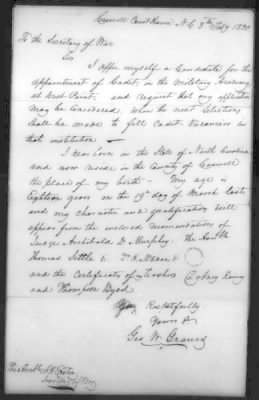 Caswell Court House, N.C. 8th July 1820
To the Secretary of War
Sir
I offer myself a Candidate for the
appointment of Cadet, in the Military Academy
at West Point, and request that my application
may be Considered, when the next selections
shall be made to fill Cadet Vacancies in
that institution —
I was born in the State of North Carolina
and now reside in the County of Caswell
the place of my birth — My age is
Eighteen years on the 19th day of March last
and my character and qualification will
appear from the enclosed recommendations of
Judge Archibald D. Murphey the Honble
Thomas Settle &
and the Certificates of
and Thompson Byrd
Very Respectfully
Yours &
Geo W. Graves
Secretary of War